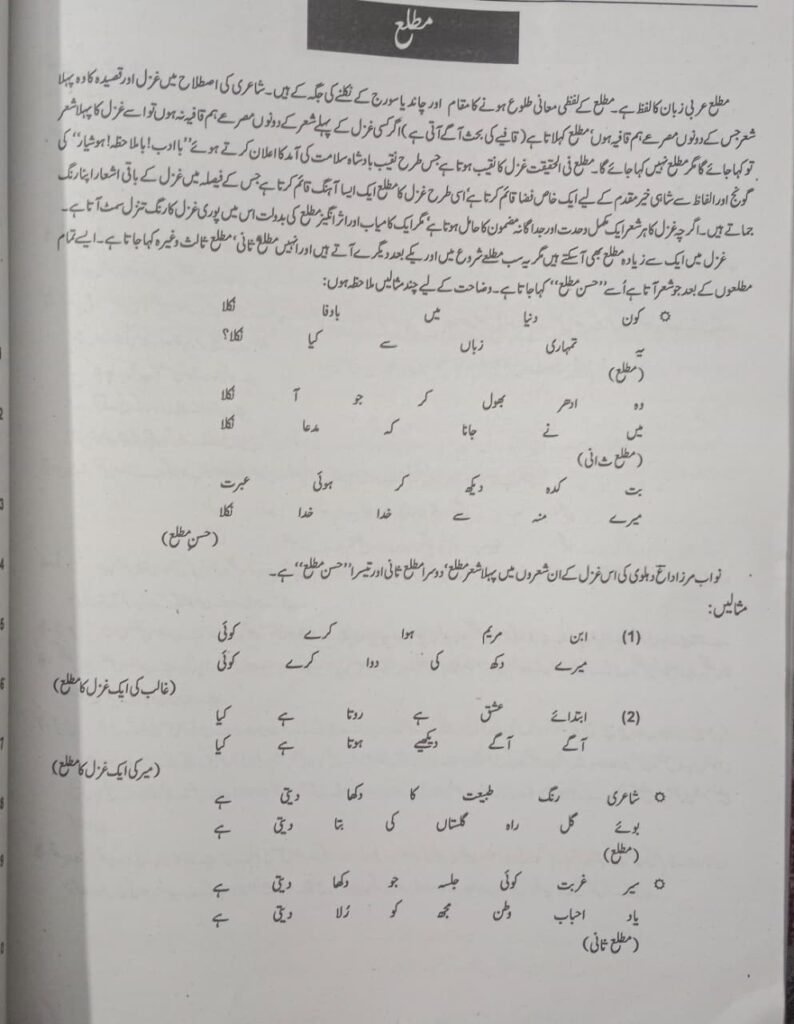 مطلع
مطلع عربی زبان کا لفظ ہے۔ مطلع کے لفظی معانی طلوع ہونے کا مقام اور چاند یا سورج کے نکلنے کی جگہ کے ہیں۔ شاعری کی اصطلاح میں غزل اور قصیدہ کا وہ پہلا
شعر جس کے دونوں مصرعے ہم قافیہ ہوں، مطلع کہلاتا ہے (قافیے کی بحث آگے آتی ہے) اگر کسی غزل کے پہلے شعر کے دونوں مصرعے ہم قافیہ نہ ہوں تو اسے غزل کا پہلا شعر
تو کہا جائے گا مگر مطلع نہیں کہا جائے گا۔ مطلع فی الحقیقت غزل کا نقیب ہوتا ہے جس طرح نقیب بادشاہ سلامت کی آمد کا اعلان کرتے ہوئے ”باادب! باملاحظہ! ہوشیار“ کی
گونج اور الفاظ سے شاہی خیر مقدم کے لیے ایک خاص فضا قائم کرتا ہے، اسی طرح غزل کا مطلع ایک ایسا آہنگ قائم کرتا ہے جس کے فیصلہ میں غزل کے باقی اشعار اپنا رنگ
جماتے ہیں۔ اگرچہ غزل کا ہر شعر ایک مکمل وحدت اور جداگانہ مضمون کا حامل ہوتا ہے، مگر ایک کامیاب اور اثر انگیز مطلع کی بدولت اس میں پوری غزل کا رنگ تنزل سمٹ آتا ہے۔
غزل میں ایک سے زیادہ مطلع بھی آسکتے ہیں مگر یہ سب مطلعے شروع میں اور یکے بعد دیگرے آتے ہیں اور انہیں مطلع ثانی، مطلع ثالث وغیرہ کہا جاتا ہے۔ ایسے تمام
مطلعوں کے بعد جو شعر آتا ہے اُسے ”حسن مطلع“ کہا جاتا ہے۔ وضاحت کے لیے چند مثالیں ملاحظہ ہوں:
☼ کون دنیا میں باوفا نکلا
یہ تمہاری زباں سے کیا نکلا؟
(مطلع)
وہ ادھر بھول کر جو آ نکلا
میں نے جانا کہ مدعا نکلا
(مطلع ثانی)
بت کدہ دیکھ کر ہوئی عبرت
میرے منہ سے خدا خدا نکلا
(حسنِ مطلع)
نواب مرزا داغ دہلوی کی اس غزل کے ان شعروں میں پہلا شعر مطلع، دوسرا مطلع ثانی اور تیسرا ”حسن مطلع“ ہے۔
مثالیں:
(1) ابن مریم ہوا کرے کوئی
میرے دکھ کی دوا کرے کوئی
(غالب کی ایک غزل کا مطلع)
(2) ابتدائے عشق ہے روتا ہے کیا
آگے آگے دیکھیے ہوتا ہے کیا
(میر کی ایک غزل کا مطلع)
☼ شاعری رنگ طبیعت کا دکھا دیتی ہے
بوئے گل راہ گلستاں کی بتا دیتی ہے
(مطلع)
☼ سیر غربت کوئی جلسہ جو دکھا دیتی ہے
یاد احباب وطن مجھ کو رُلا دیتی ہے
(مطلع ثانی)